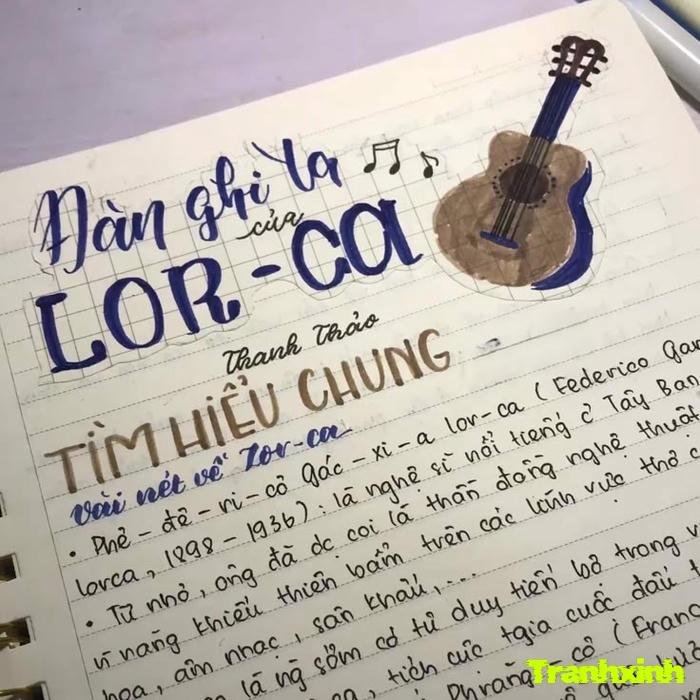 Đàn ghi ta
của
LOR-CA
Thanh Thảo
TÌM HIỂU CHUNG
Vài nét về Lor-ca
• Phê-đê-ri-cô Gác-xi-a lor-ca (Federico Gar
lorca, 1898-1936): là nghệ sĩ nổi tiếng ở Tây Ban
• Từ nhỏ, ông đã dc coi là thần đồng nghệ thuật
vì năng khiếu thiên bẩm trên các lĩnh vực thơ c
họa, âm nhạc, sân khấu,...
là ng sớm có tư duy tiến bộ trong v
tích cực tgia cuộc đấu t
cô (Fran
Tranhxinh